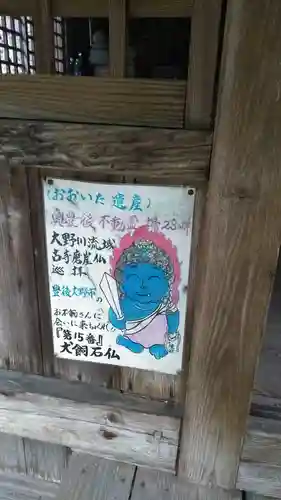 (おおいた遺産)
奥豊後不動霊場28ヶ所
大野川流域
古寺磨崖仏
巡拝
豊後大野不の
お不動さんに
会いに来ちくれ!!
『第15番』
犬飼石仏